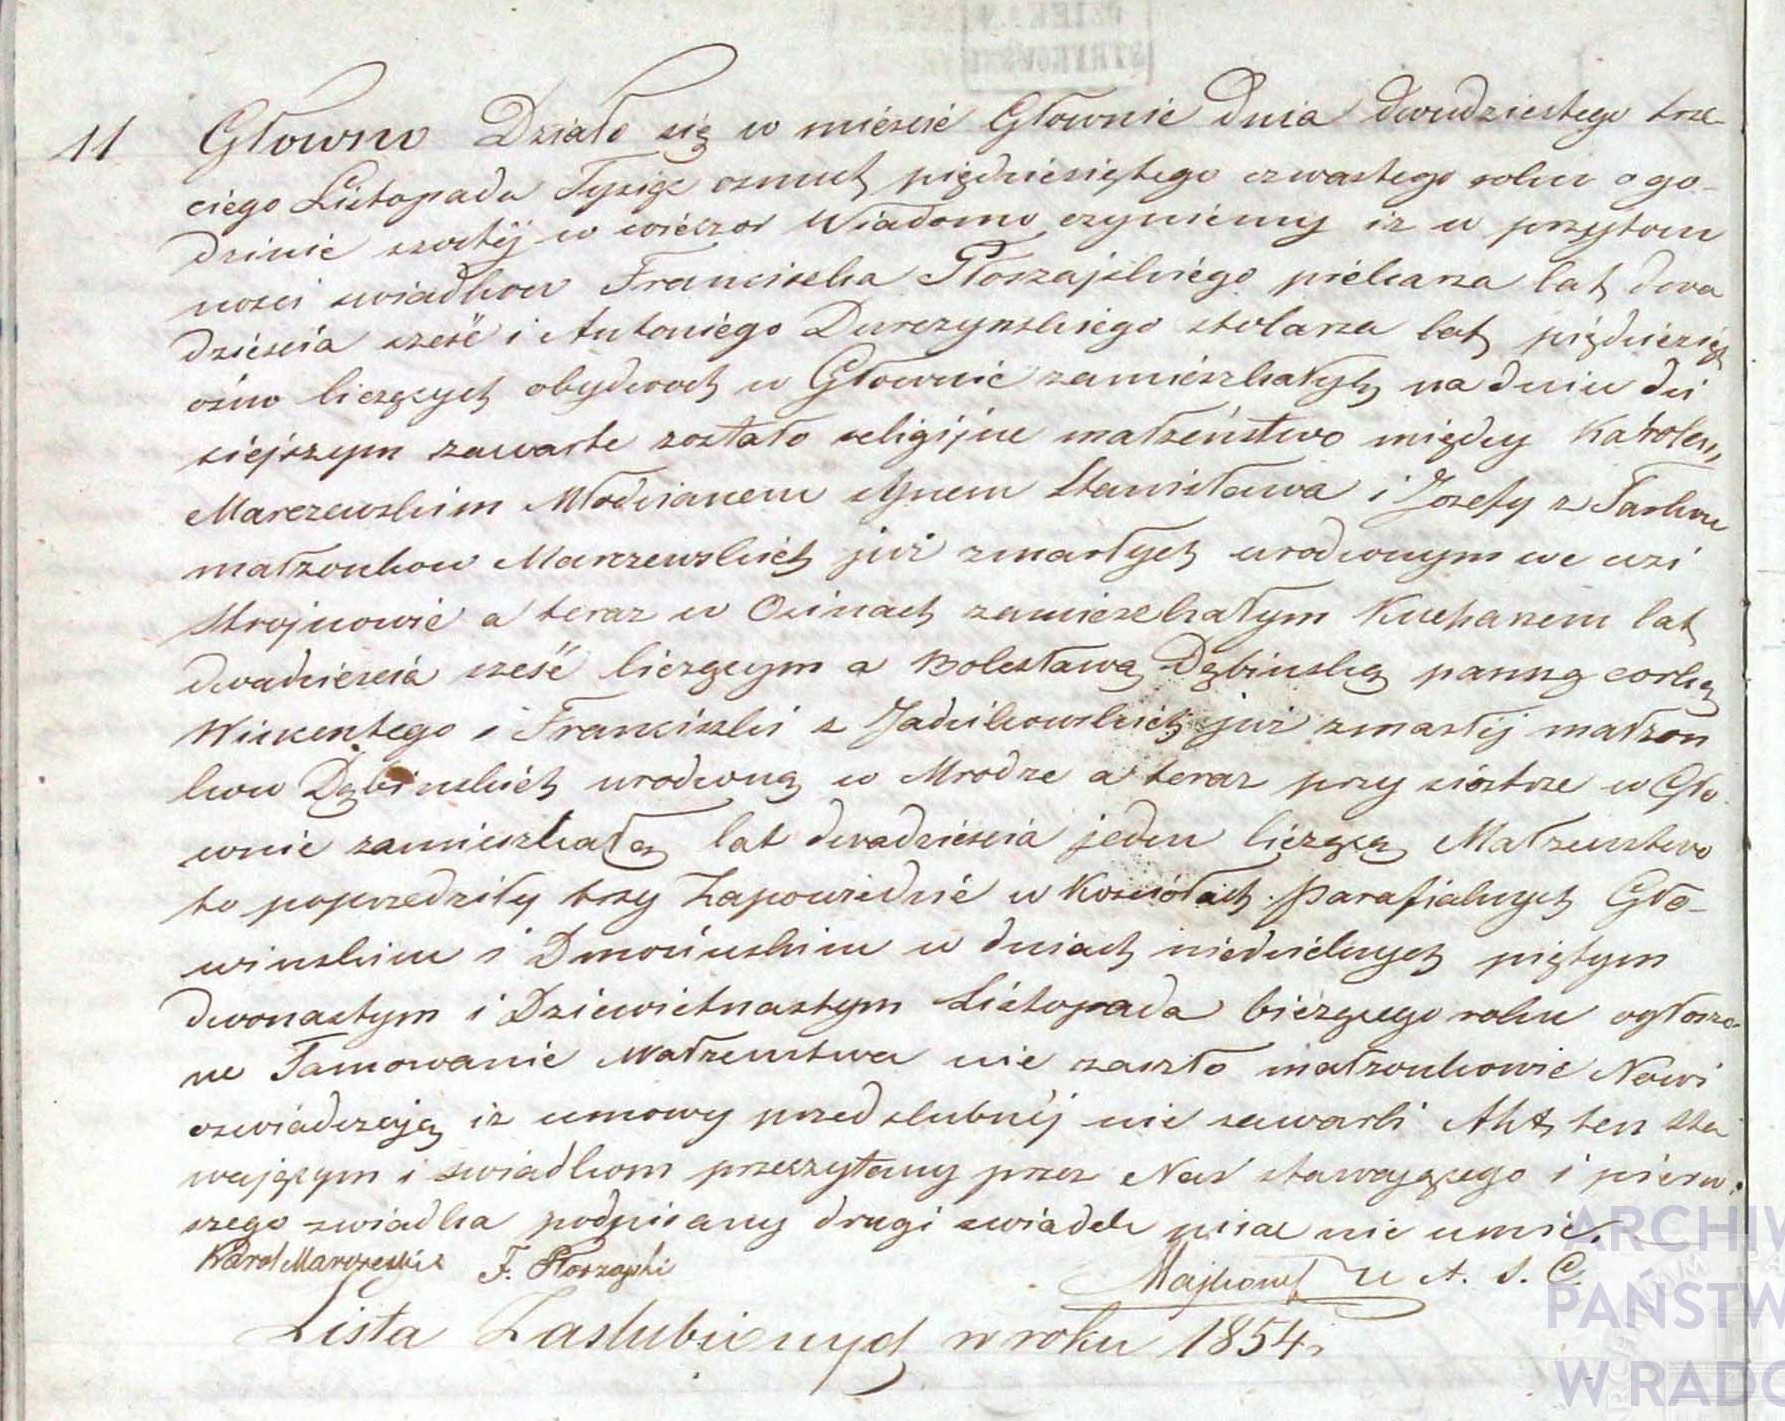 11 Głowno Działo się w mieście Głownie Dnia dwudziestego trze-
ciego Listopada Tysiąc osmset pięćdziesiątego czwartego roku o go-
dzinie szóstej w wieczor Wiadomo czyniemy iż w przytom
ności swiadkow Franciszka Płoszajskiego piekarza lat dwa
dzieścia sześć i Antoniego Durczynskiego stolarza lat pięćdziesiąt
ośm liczących obydwoch w Głownie zamieszkałych na dniu dzi
siejszym zawarte zostało religijne małżeństwo między Karolem
Marczewskim Młodzianem synem Stanisława i Jozefy z
małzonkow Marczewskich już zmarłych urodzonym we wsi
Strojnowie a teraz w Osinach zamieszkałym Kucharzem lat
dwadzieścia sześć liczącym a Bolesławą Dąbinską panną corką
Wincentego i Franciszki z już zmarłéj małzon
kow Dąbinskich urodzoną w Mrodze a teraz przy siostrze w Gło
wnie zamieszkałą lat dwadzieścia jeden liczącą Małzenstwo
to poprzedziły trzy Zapowiedzie w Kosciołach Parafialnych Gło-
winskim i Dmosinskim w dniach niedzielnych piątym
dwonastym i Dziewietnastym Listopada bieżącego roku ogłoszo-
ne Tamowanie Małzenstwa nie zaszło małzonkowie Nowi
oswiadczają iz umowy przedslubnéj nie zawarli Akt ten sta
wającym i swiadkom przeczytany przez Nas stawającego i pierw-
szego swiadka podpisany drugi swiadek pisac nie umie.
Karol Marczewski F. Płoszajski U A. S. C.
Lista Zaslubionych w roku 1854.
ARCHIW
PAŃSTW
W RADO